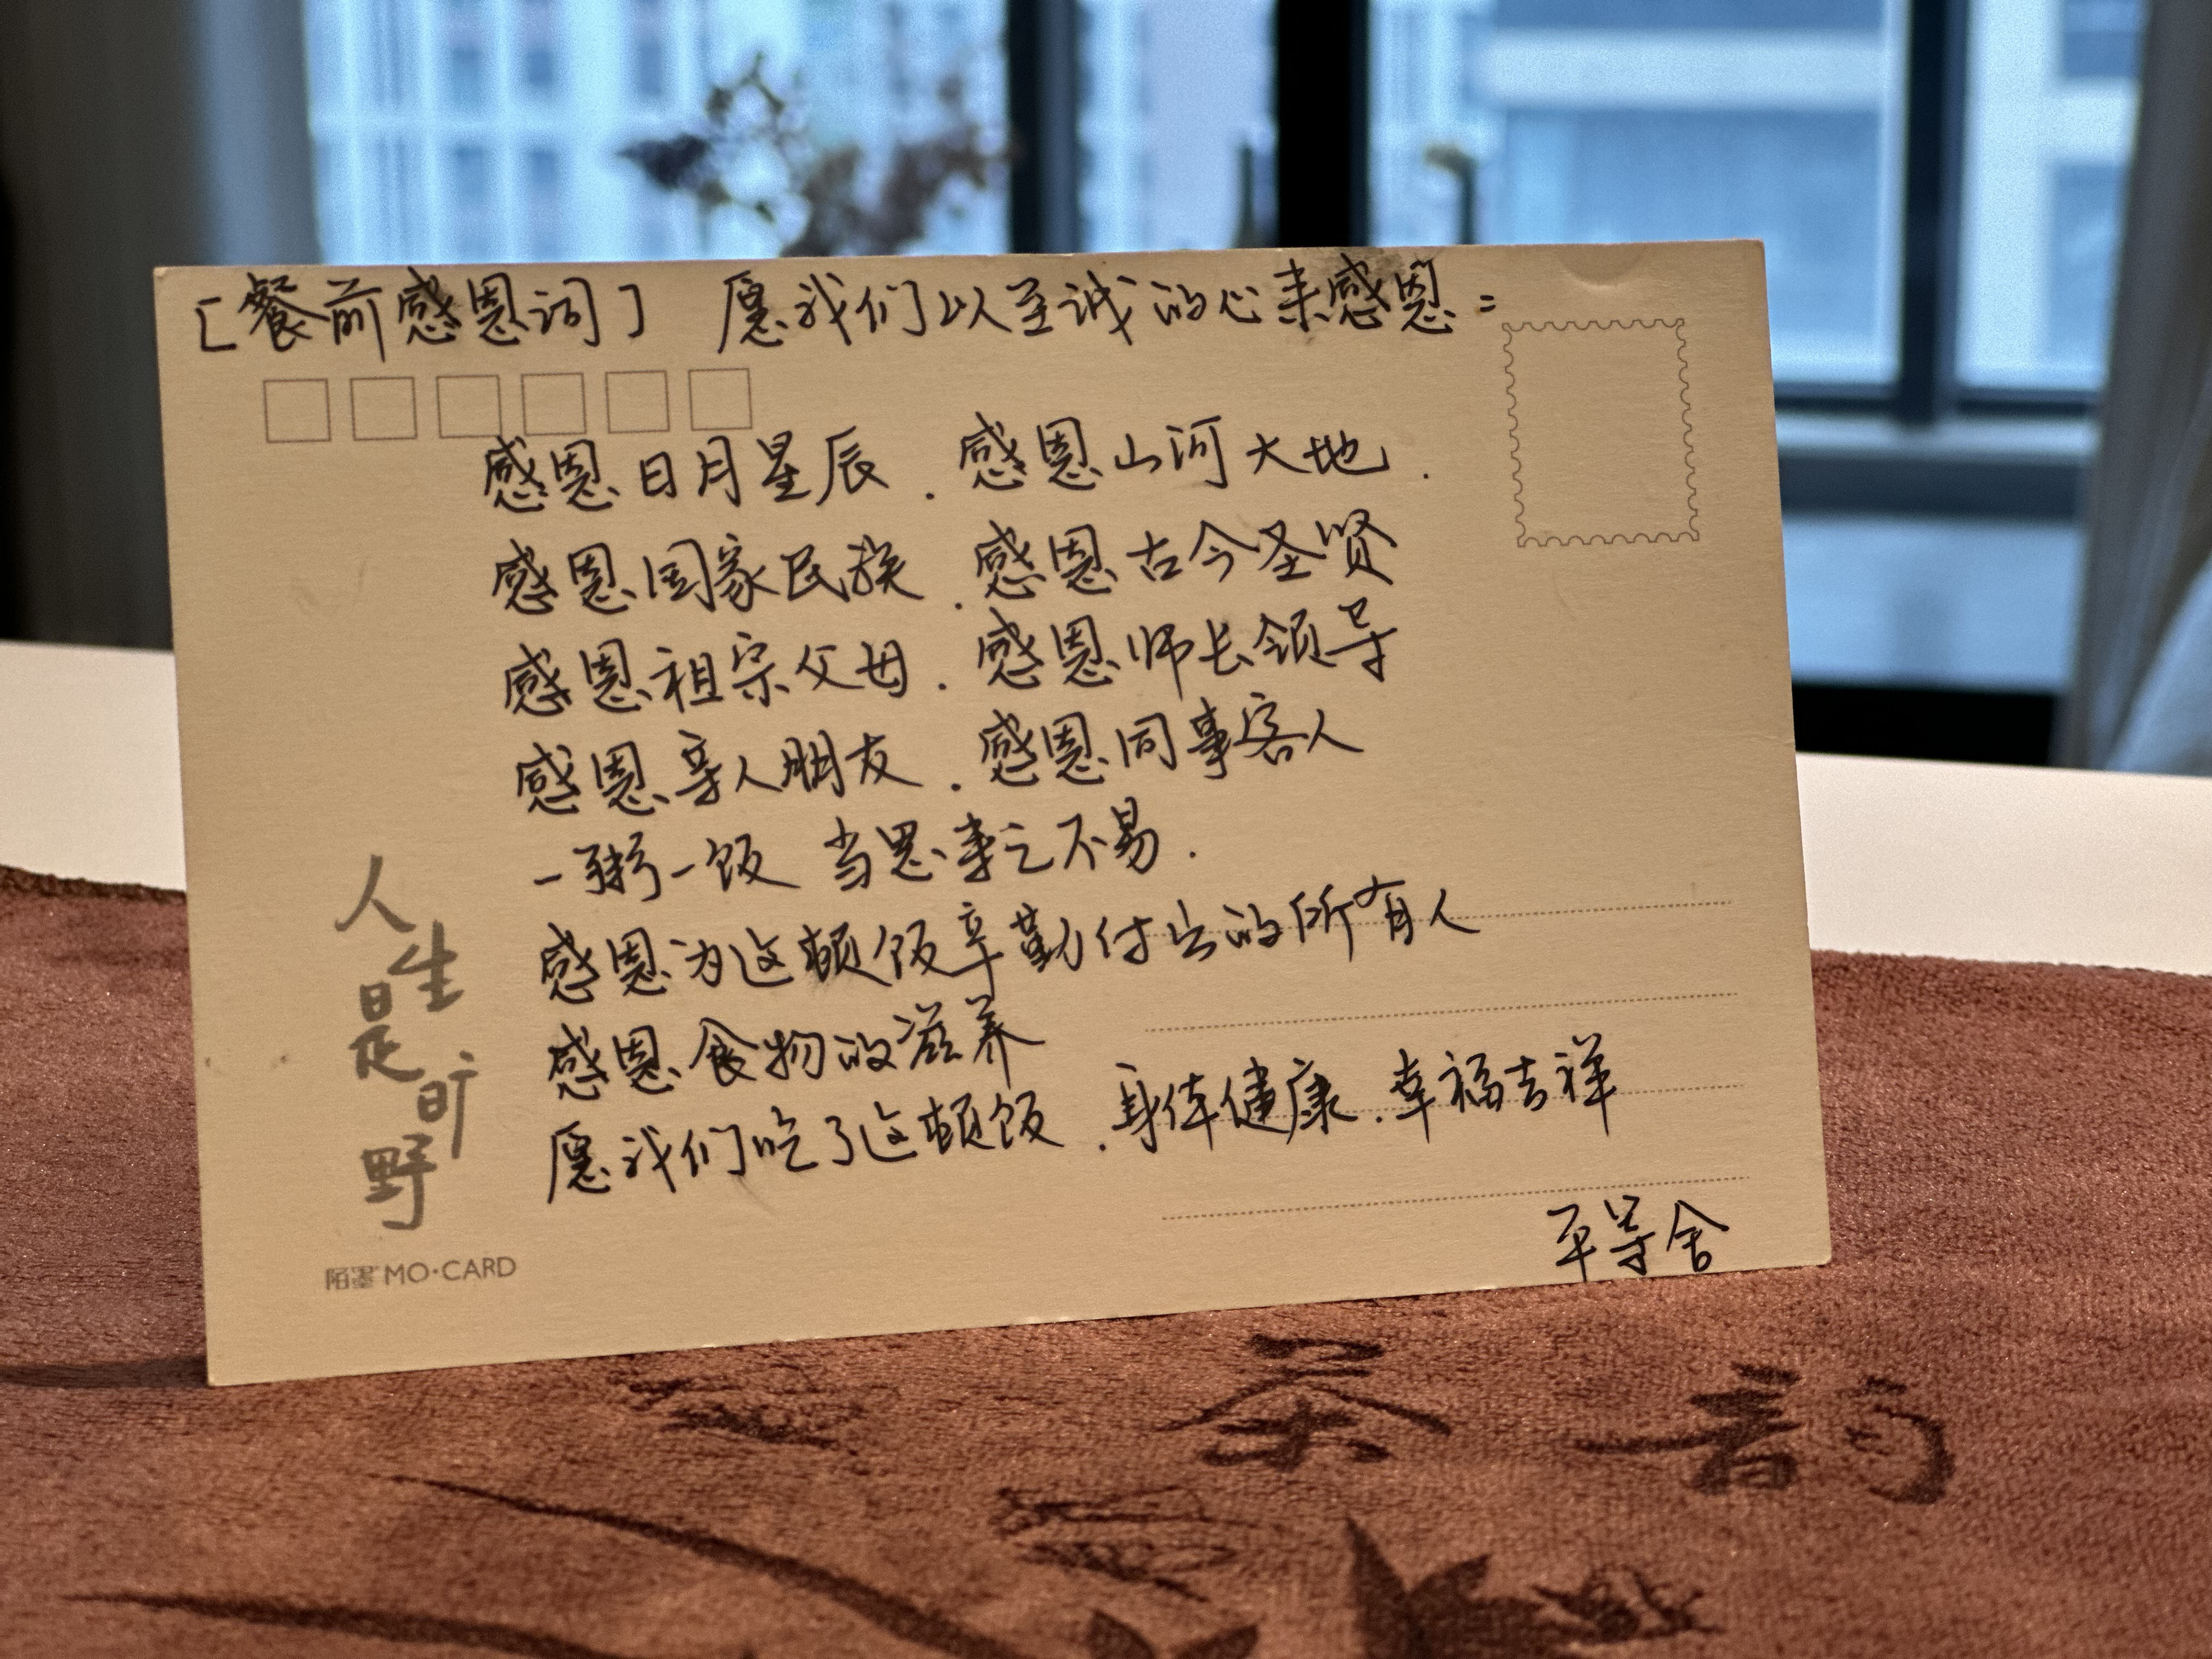 [餐前感恩词] 愿我们以至诚的心来感恩:
感恩日月星辰.感恩山河大地.
感恩国家民族.感恩古今圣贤
感恩祖宗父母.感恩师长领导
感恩亲人朋友.感恩同事客人
一粥一饭 当思来之不易.
感恩为这顿饭辛勤付出的所有人
感恩食物的滋养
愿我们吃了这顿饭.身体健康.幸福吉祥
平等舍
人生是旷野
陌墨 MO·CARD
茶韵